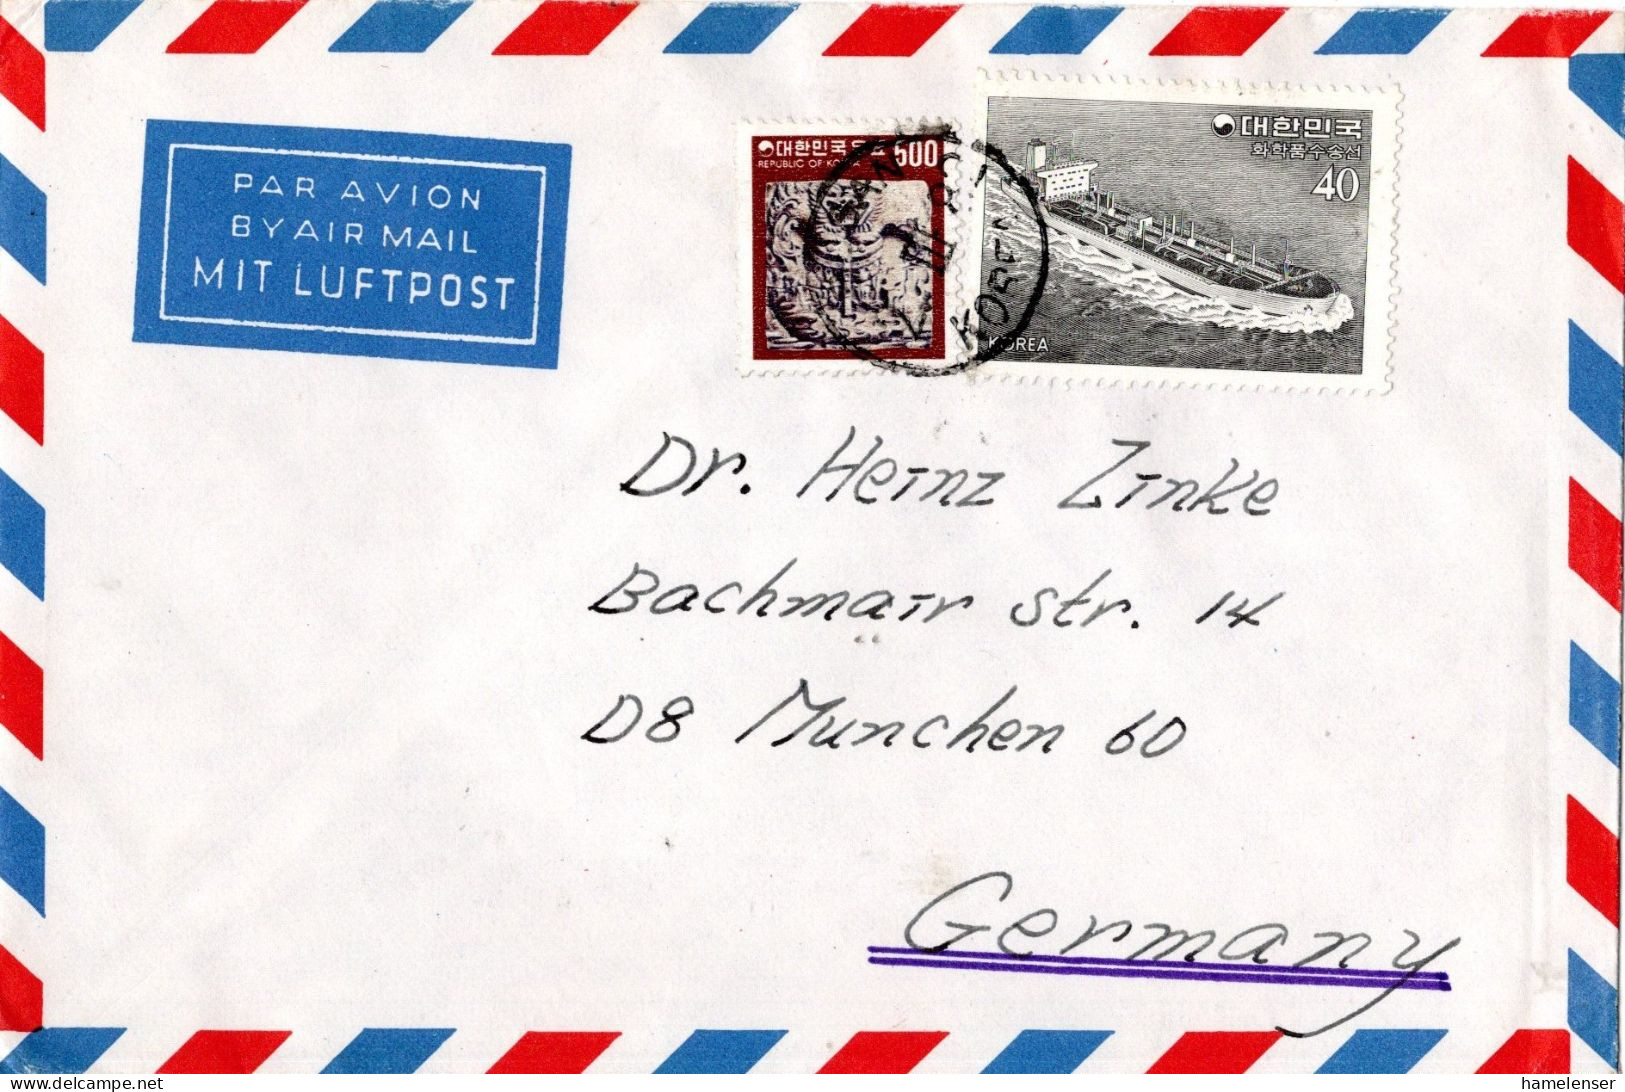 PAR AVION
BY AIR MAIL
MIT LUFTPOST
대한민국 우표 500
REPUBLIC OF KOREA
대한민국
화학품수송선
40
KOREA
KOREA
Dr. Heinz Zinke
Bachmair Str. 14
D8 Munchen 60
Germany
www.delcampe.net
hamelenser